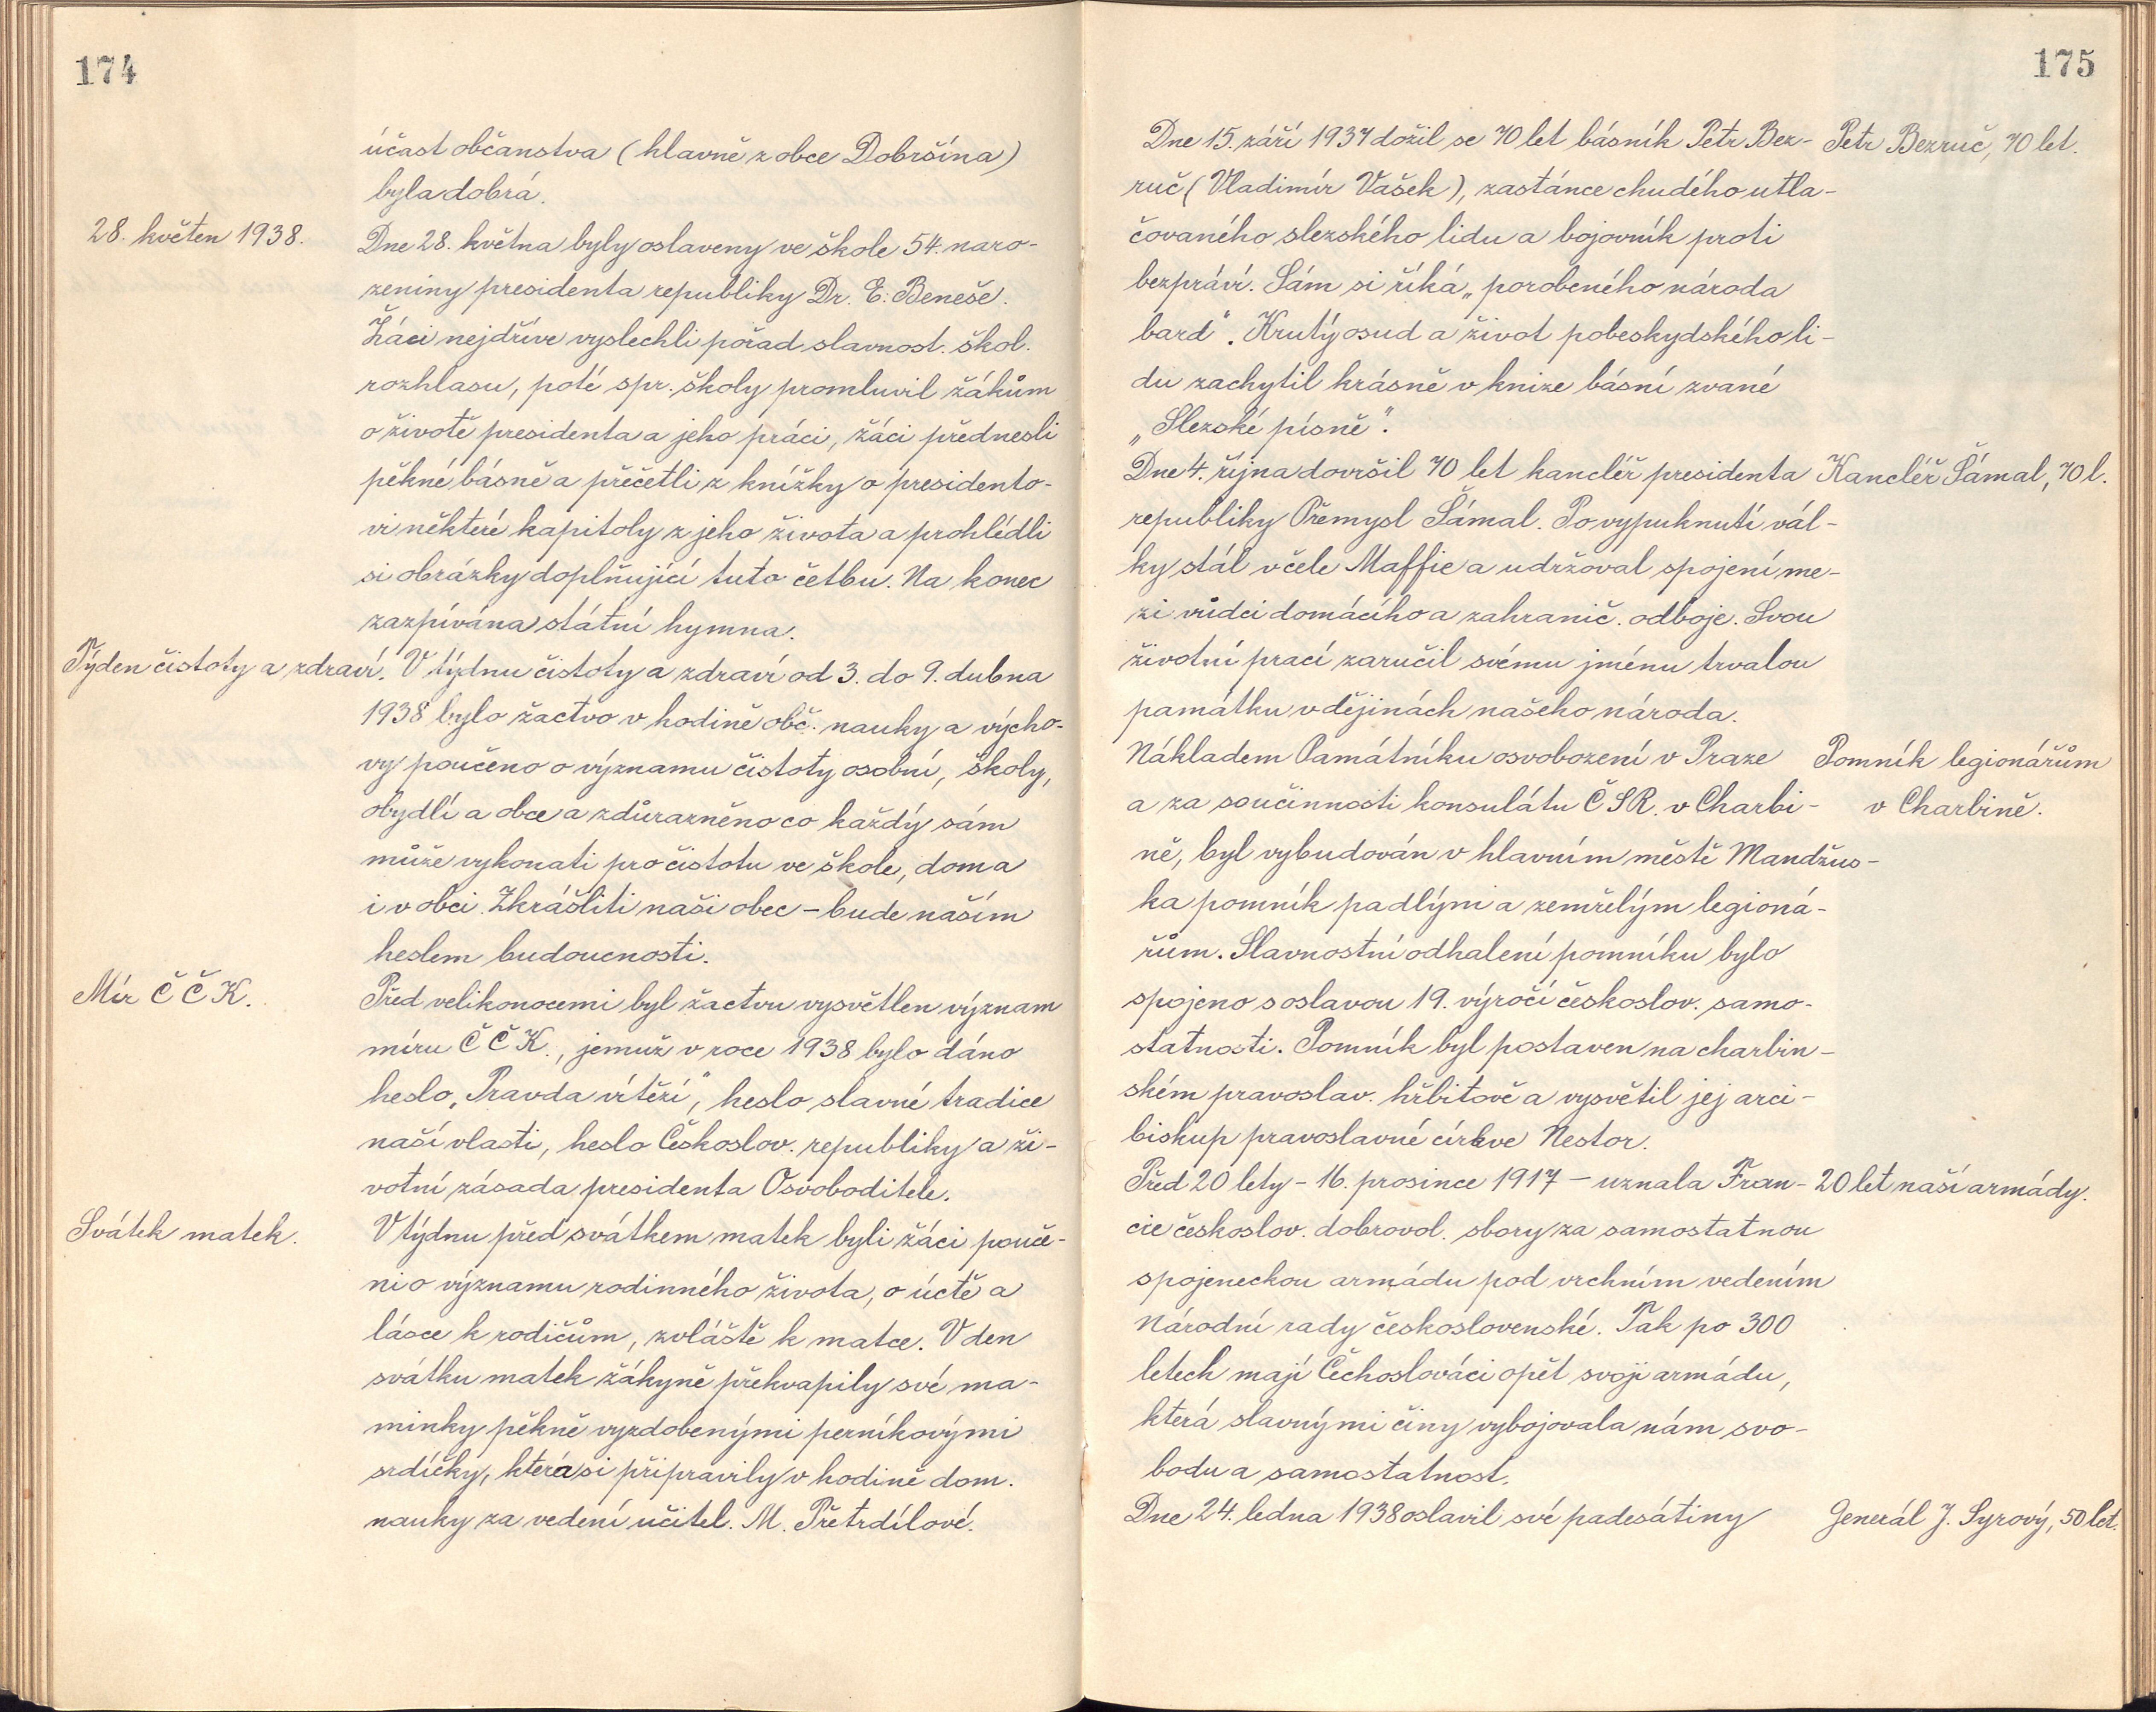 174
účast občanstva (hlavně z obce Dobršína)
byla dobrá.
28. květen 1938.
Dne 28. května byly oslaveny ve škole 54. naro-
zeniny presidenta republiky Dr. E. Beneše.
Žáci nejdříve vyslechli pořad slavnost. škol.
rozhlasu, poté spr. školy promluvil žákům
o životě presidenta a jeho práci, žáci přednesli
pěkné básně a přečetli z knížky o presidento-
vi některé kapitoly z jeho života a prohlédli
si obrázky doplňující tuto četbu. Na konec
zazpívána státní hymna.
Týden čistoty a zdraví.
V týdnu čistoty a zdraví od 3. do 9. dubna
1938 bylo žactvo v hodině obč. nauky a výcho-
vy poučeno o významu čistoty osobní, školy,
obydlí a obce a zdůrazněno co každý sám
může vykonati pro čistotu ve škole, doma
i v obci. Zkrášliti naši obec – bude naším
heslem budoucnosti.
Mír Č Č K.
Před velikonocemi byl žactvu vysvětlen význam
míru Č Č K., jemuž v roce 1938 bylo dáno
heslo „Pravda vítězí", heslo slavné tradice
naší vlasti, heslo Českoslov. republiky a ži-
votní zásada presidenta Osvoboditele.
Svátek matek.
V týdnu před svátkem matek byli žáci pouče-
ni o významu rodinného života, o úctě a
lásce k rodičům, zvláště k matce. V den
svátku matek žákyně překvapily své ma-
minky pěkně vyzdobenými perníkovými
srdíčky, která si připravily v hodině dom.
nauky za vedení učitel. M. Přetrdílové.
175
Dne 15. září 1937 dožil se 70 let básník Petr Bez-
Petr Bezruč, 70 let.
ruč (Vladimír Vašek), zastánce chudého utla-
čovaného slezského lidu a bojovník proti
bezpráví. Sám si říká „porobeného národa
bard". Krutý osud a život pobeskydského li-
du zachytil krásně v knize básní zvané
„Slezské písně".
Dne 4. října dovršil 70 let kancléř presidenta
Kancléř Šámal, 70 l.
republiky Přemysl Šámal. Po vypuknutí vál-
ky stál v čele Maffie a udržoval spojení me-
zi vůdci domácího a zahranič. odboje. Svou
životní prací zaručil svému jménu trvalou
památku v dějinách našeho národa.
Nákladem Památníku osvobození v Praze
Pomník legionářům
a za součinnosti konsulátu Č S R. v Charbi-
v Charbině.
ně, byl vybudován v hlavním městě Mandžus-
ka pomník padlým a zemřelým legioná-
řům. Slavnostní odhalení pomníku bylo
spojeno s oslavou 19. výročí českoslov. samo-
statnosti. Pomník byl postaven na charbin-
ském pravoslav. hřbitově a vysvětil jej arci-
biskup pravoslavné církve Nestor.
Před 20 lety – 16. prosince 1917 – uznala Fran-
20 let naší armády.
cie českoslov. dobrovol. sbory za samostatnou
spojeneckou armádu pod vrchním vedením
Národní rady československé. Tak po 300
letech mají Čechoslováci opět svoji armádu,
která slavnými činy vybojovala nám svo-
bodu a samostatnost.
Dne 24. ledna 1938 oslavil své padesátiny
Generál J. Syrový, 50 let.